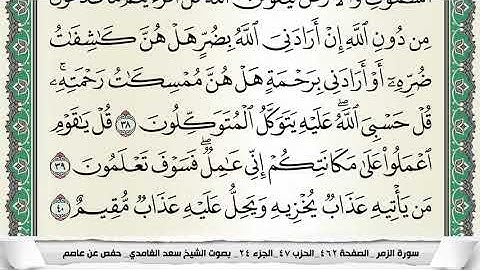 مِن دُونِ ٱللَّهِ إِنْ أَرَادَنِيَ ٱللَّهُ بِضُرٍّ هَلْ هُنَّ كَٰشِفَٰتُ
ضُرِّهِۦٓ أَوْ أَرَادَنِي بِرَحْمَةٍ هَلْ هُنَّ مُمْسِكَٰتُ رَحْمَتِهِۦۚ
قُلْ حَسْبِيَ ٱللَّهُۖ عَلَيْهِ يَتَوَكَّلُ ٱلْمُتَوَكِّلُونَ ٣٨ قُلْ يَٰقَوْمِ
ٱعْمَلُوا۟ عَلَىٰ مَكَانَتِكُمْ إِنِّي عَٰمِلٌۖ فَسَوْفَ تَعْلَمُونَ ٣٩
مَن يَأْتِيهِ عَذَابٌ يُخْزِيهِ وَيَحِلُّ عَلَيْهِ عَذَابٌ مُّقِيمٌ ٤٠
سورة الزمر _الصفحة ٤٦٢_الحزب ٤٧_الجزء ٢٤_ بصوت الشيخ سعد الغامدي_ حفص عن عاصم